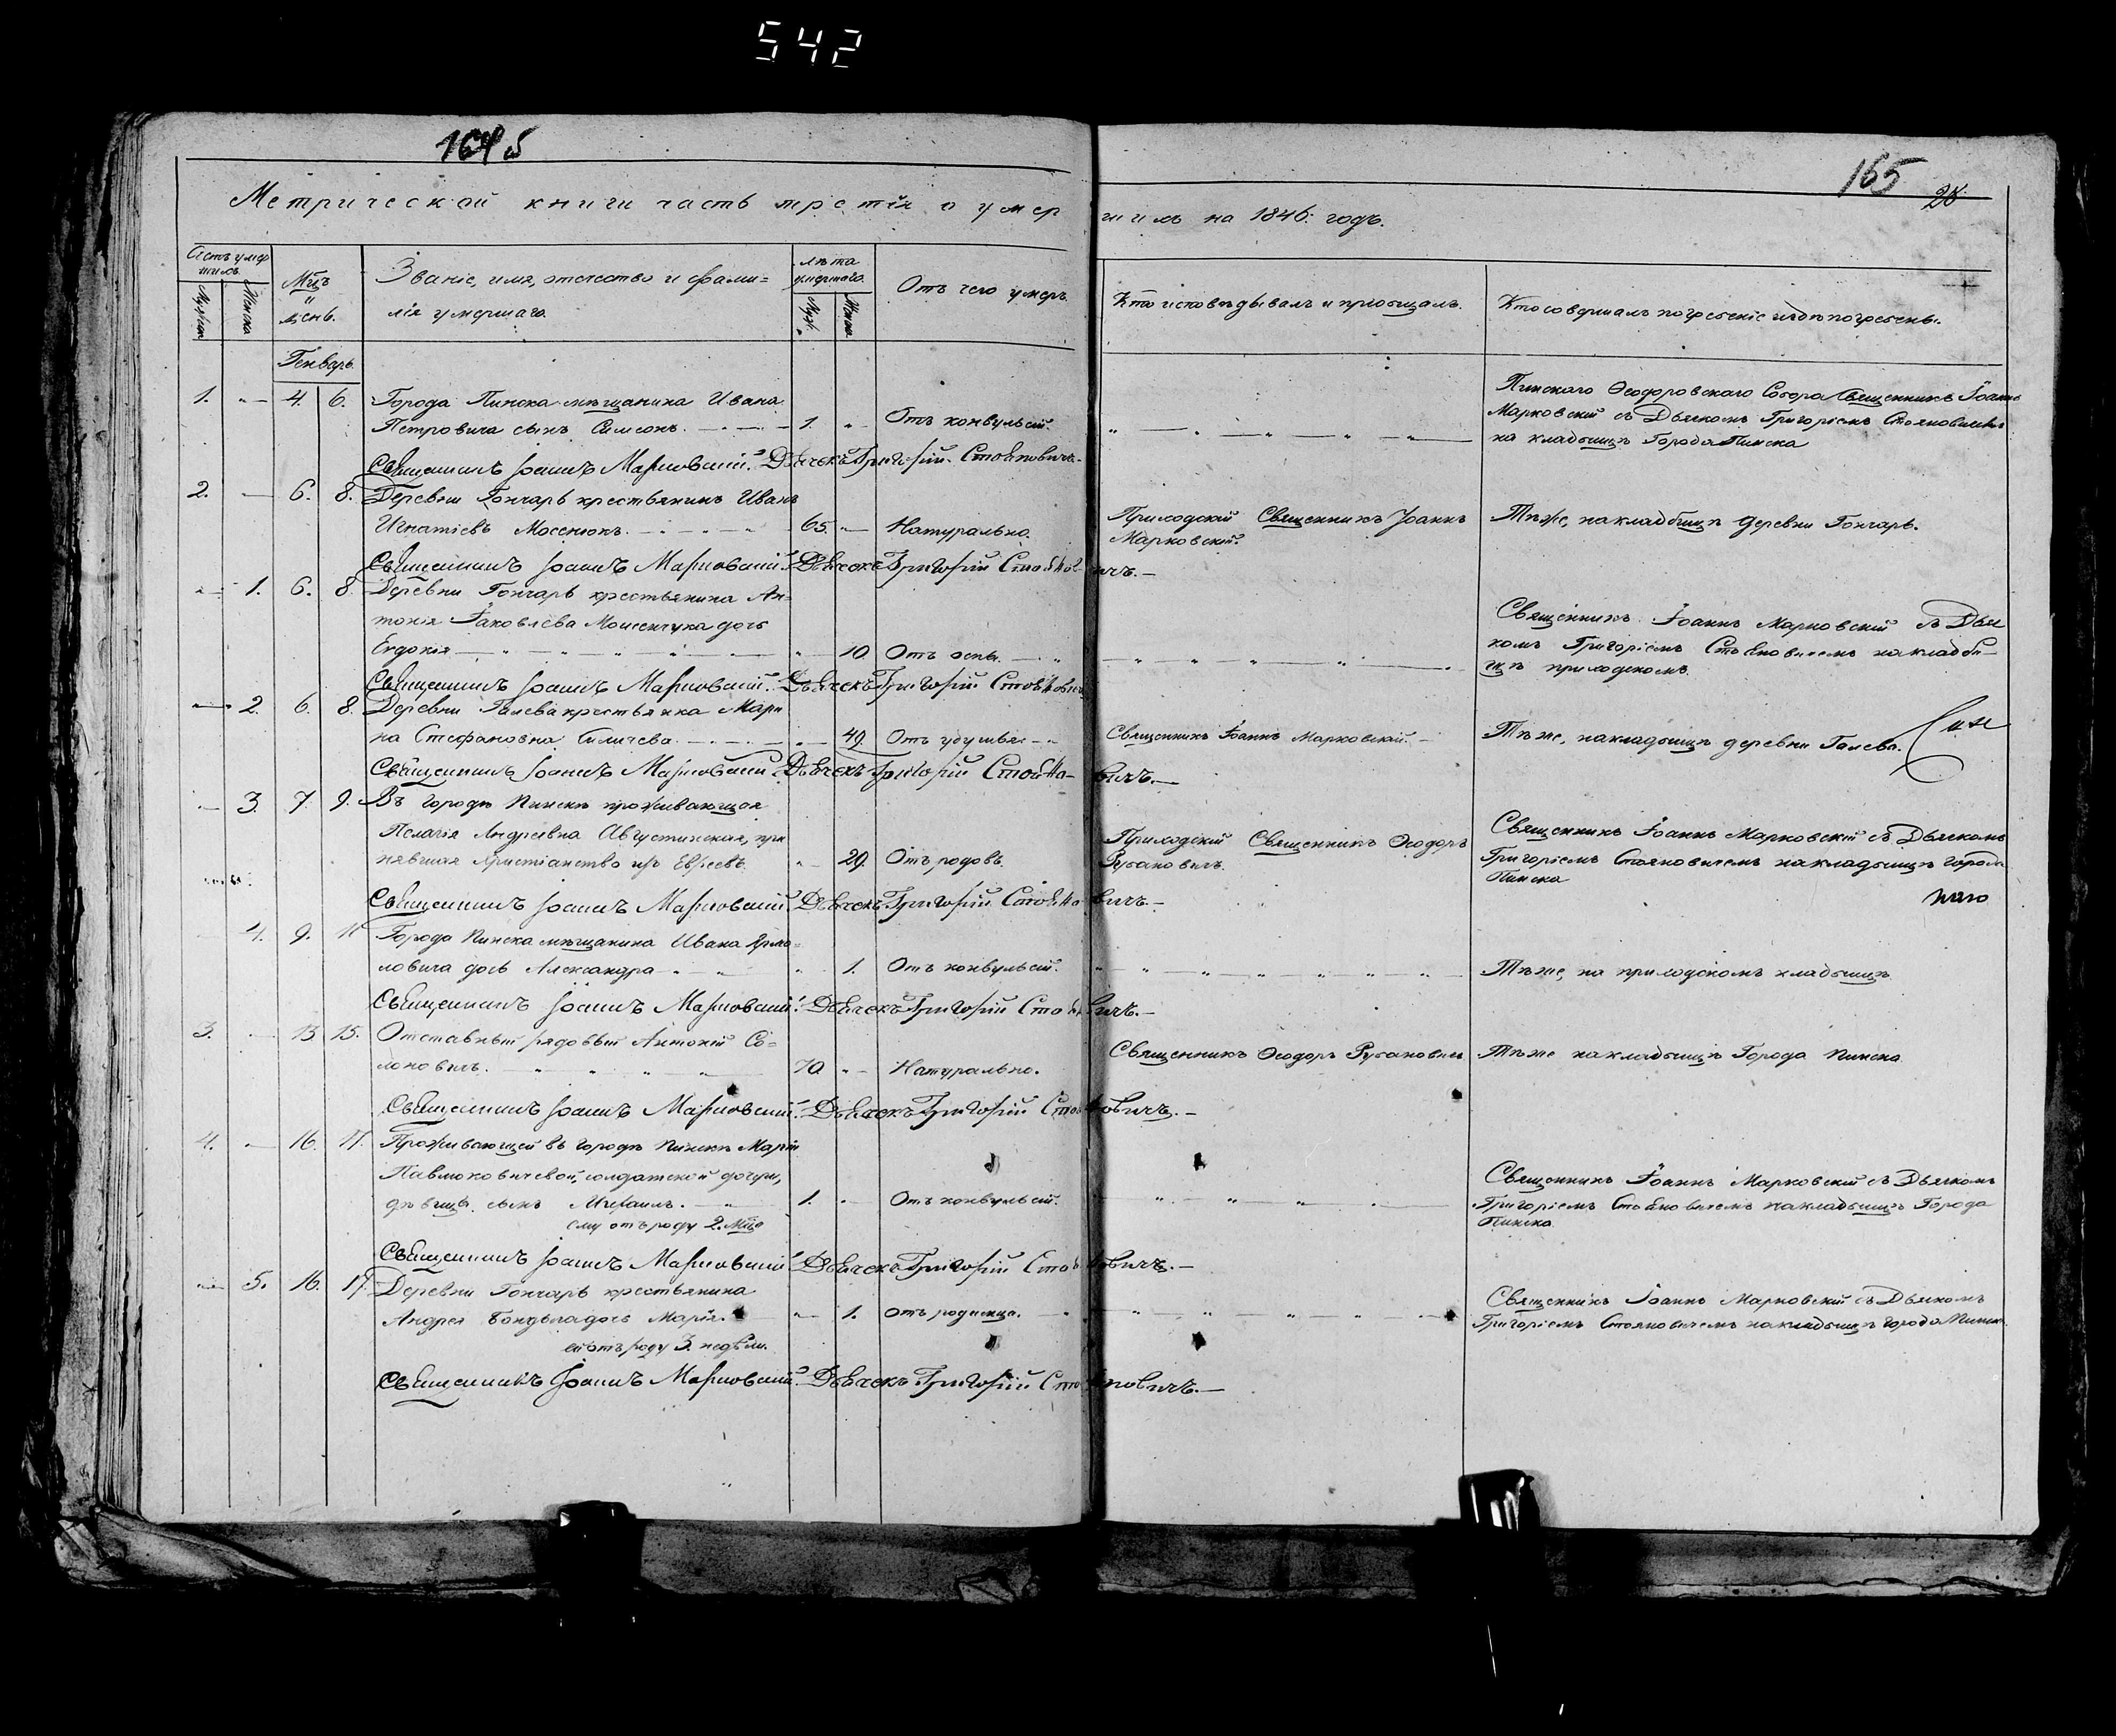 542
164 б
165
28
Метрической книги часть третія о умер
шихъ на 1846. годъ.
Счетъ умер
шихъ.
Мужска
Женска
Мцъ
и
день.
Званіе, имя, отечество и фами=
лія умершаго.
лѣта
умершаго.
Муж.
Женс.
Отъ чего умеръ.
Кто исповѣдывалъ и пріобщалъ.
Кто совершалъ погребеніе и гдѣ погребены.
Генварь.
1. 4. 6. Города Пинска мѣщанина Ивана
Петровича сынъ Симеонъ. 1. Отъ конвульсій.
Пинскаго Ѳеодоровскаго Собора Священникъ Іоаннъ
Марковскій съ Дьячкомъ Григоріемъ Стояновичемъ
на кладбищѣ Города Пинска
Священникъ Іоаннъ Марковскій. Дьячекъ Григорій Стояновичъ.
2. 6. 8. Деревни Гончаръ крестьянинъ Иванъ
Игнатіевъ Мосенюкъ. 65. Натурально.
Приходскій Священникъ Іоаннъ
Марковскій.
Тѣже, на кладбищѣ деревни Гончаръ.
Священникъ Іоаннъ Марковскій. Дьячекъ Григорій Стояновичъ.
1. 6. 8. Деревни Гончаръ крестьянина Ан=
тонія Іаковлева дочь
Евдокія 10. Отъ оспы.
Священникъ Іоаннъ Марковскій съ Дьяч
комъ Григоріемъ Стояновичемъ на кладби=
щѣ приходскомъ.
Священникъ Іоаннъ Марковскій. Дьячекъ Григорій Стояновичъ
2. 6. 8. Деревни Галева крестьянка Мари
на Стефановна 49. Отъ удушья.
Священникъ Іоаннъ Марковскій.
Тѣже, на кладбищѣ деревни Галева.
Священникъ Іоаннъ Марковскій. Дьячекъ Григорій Стояновичъ.
3. 7. 9. Въ городѣ Пинскѣ проживающая
Пелагія Андреевна Августинская, при
нявшая Христіанство изъ Евреевъ. 29. Отъ родовъ.
Приходскій Священникъ Ѳеодоръ
Рубановичъ.
Священникъ Іоаннъ Марковскій съ Дьячкомъ
Григоріемъ Стояновичемъ на кладбищѣ города
Пинска
Священникъ Іоаннъ Марковскій. Дьячекъ Григорій Стояновичъ.
4. 9. 11 Города Пинска мѣщанина Ивана Ярмо=
ловича дочь Александра 1. Отъ конвульсій.
Тѣже, на приходскомъ кладбищѣ
Священникъ Іоаннъ Марковскій. Дьячекъ Григорій Стояновичъ.
3. 13 15. Отставный рядовый Антоній Со=
лоновичъ. 70. Натурально.
Священникъ Ѳеодоръ Рубановичъ
Тѣже на кладбищѣ Города Пинска
Священникъ Іоаннъ Марковскій. Дьячекъ Григорій Стояновичъ.
4. 16. 17. Проживающей въ городѣ Пинскѣ Маріи
Павлюковичевой, солдатской дочери,
дѣвицы сынъ Михаилъ. 1. Отъ конвульсій.
ему отъ роду 2. Мца
Священникъ Іоаннъ Марковскій съ Дьячкомъ
Григоріемъ Стояновичемъ на кладбищѣ Города
Пинска.
Священникъ Іоаннъ Марковскій. Дьячекъ Григорій Стояновичъ.
5. 16. 17. Деревни Гончаръ крестьянина
Андрея дочь Марія. 1. отъ родимца.
ей отъ роду 3. недѣли.
Священникъ Іоаннъ Марковскій съ Дьячкомъ
Григоріемъ Стояновичемъ на кладбищѣ города Пинска.
Священникъ Іоаннъ Марковскій. Дьячекъ Григорій Стояновичъ.